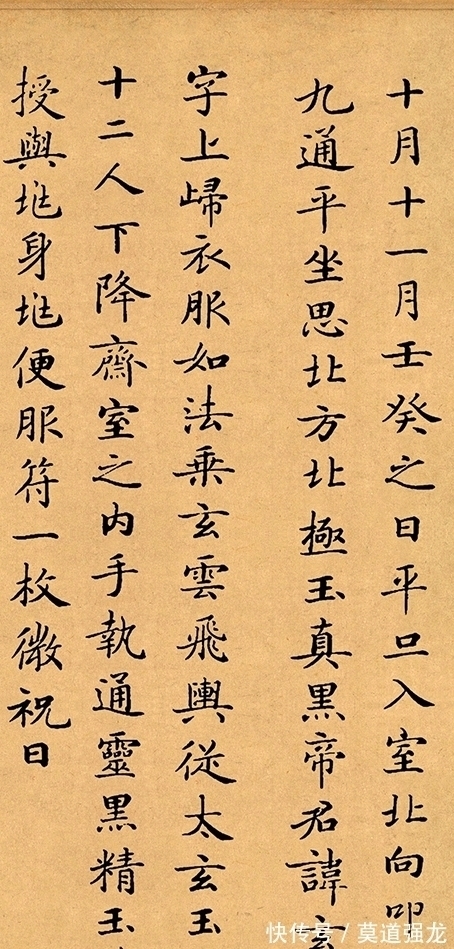 十月十一月壬癸之日平旦入室北向叩
九通平坐思北方北極玉真黑帝君諱玄
字上歸衣服如法乘玄雲飛輿從太玄玉
十二人下降齋室之內手執通靈黑精玉
授與兆身兆便服符一枚微祝曰
快传号 / 莫道强龙